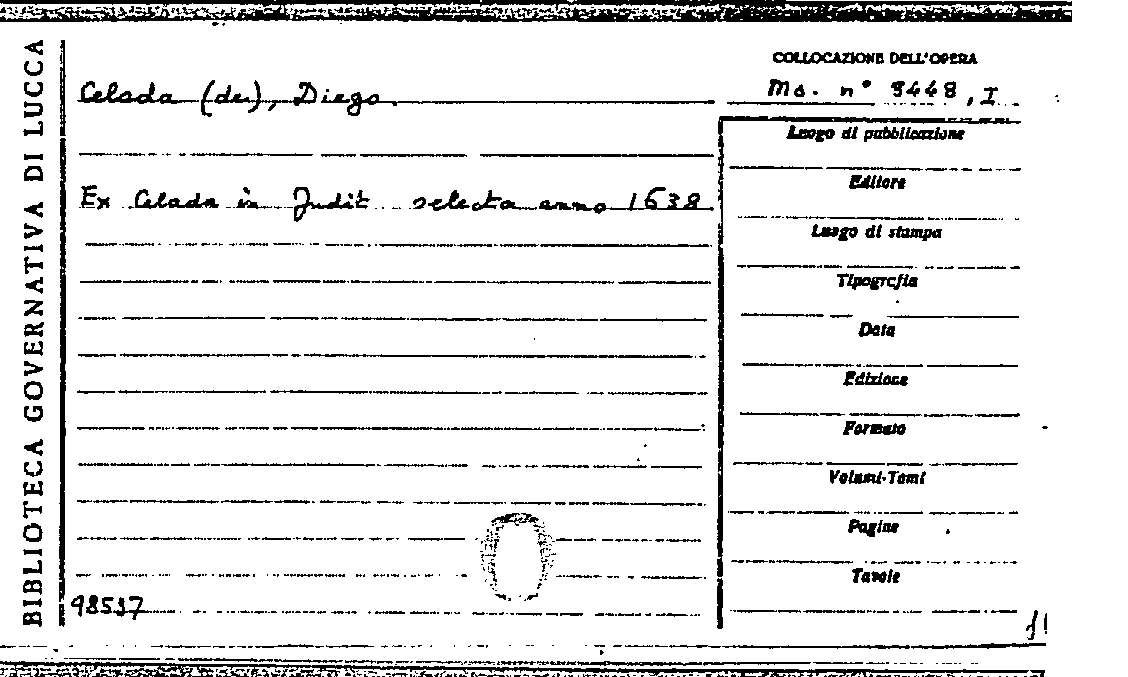 BIBLIOTECA GOVERNATIVA DI LUCCA
Celada (de), Diego.
Ex Celada in Judit selecta anno 1638
98537
COLLOCAZIONE DELL'OPERA
Ms. n° 3448, I
Luogo di pubblicazione
Editore
Luogo di stampa
Tipografia
Data
Edizione
Formato
Volumi-Tomi
Pagine
Tavole